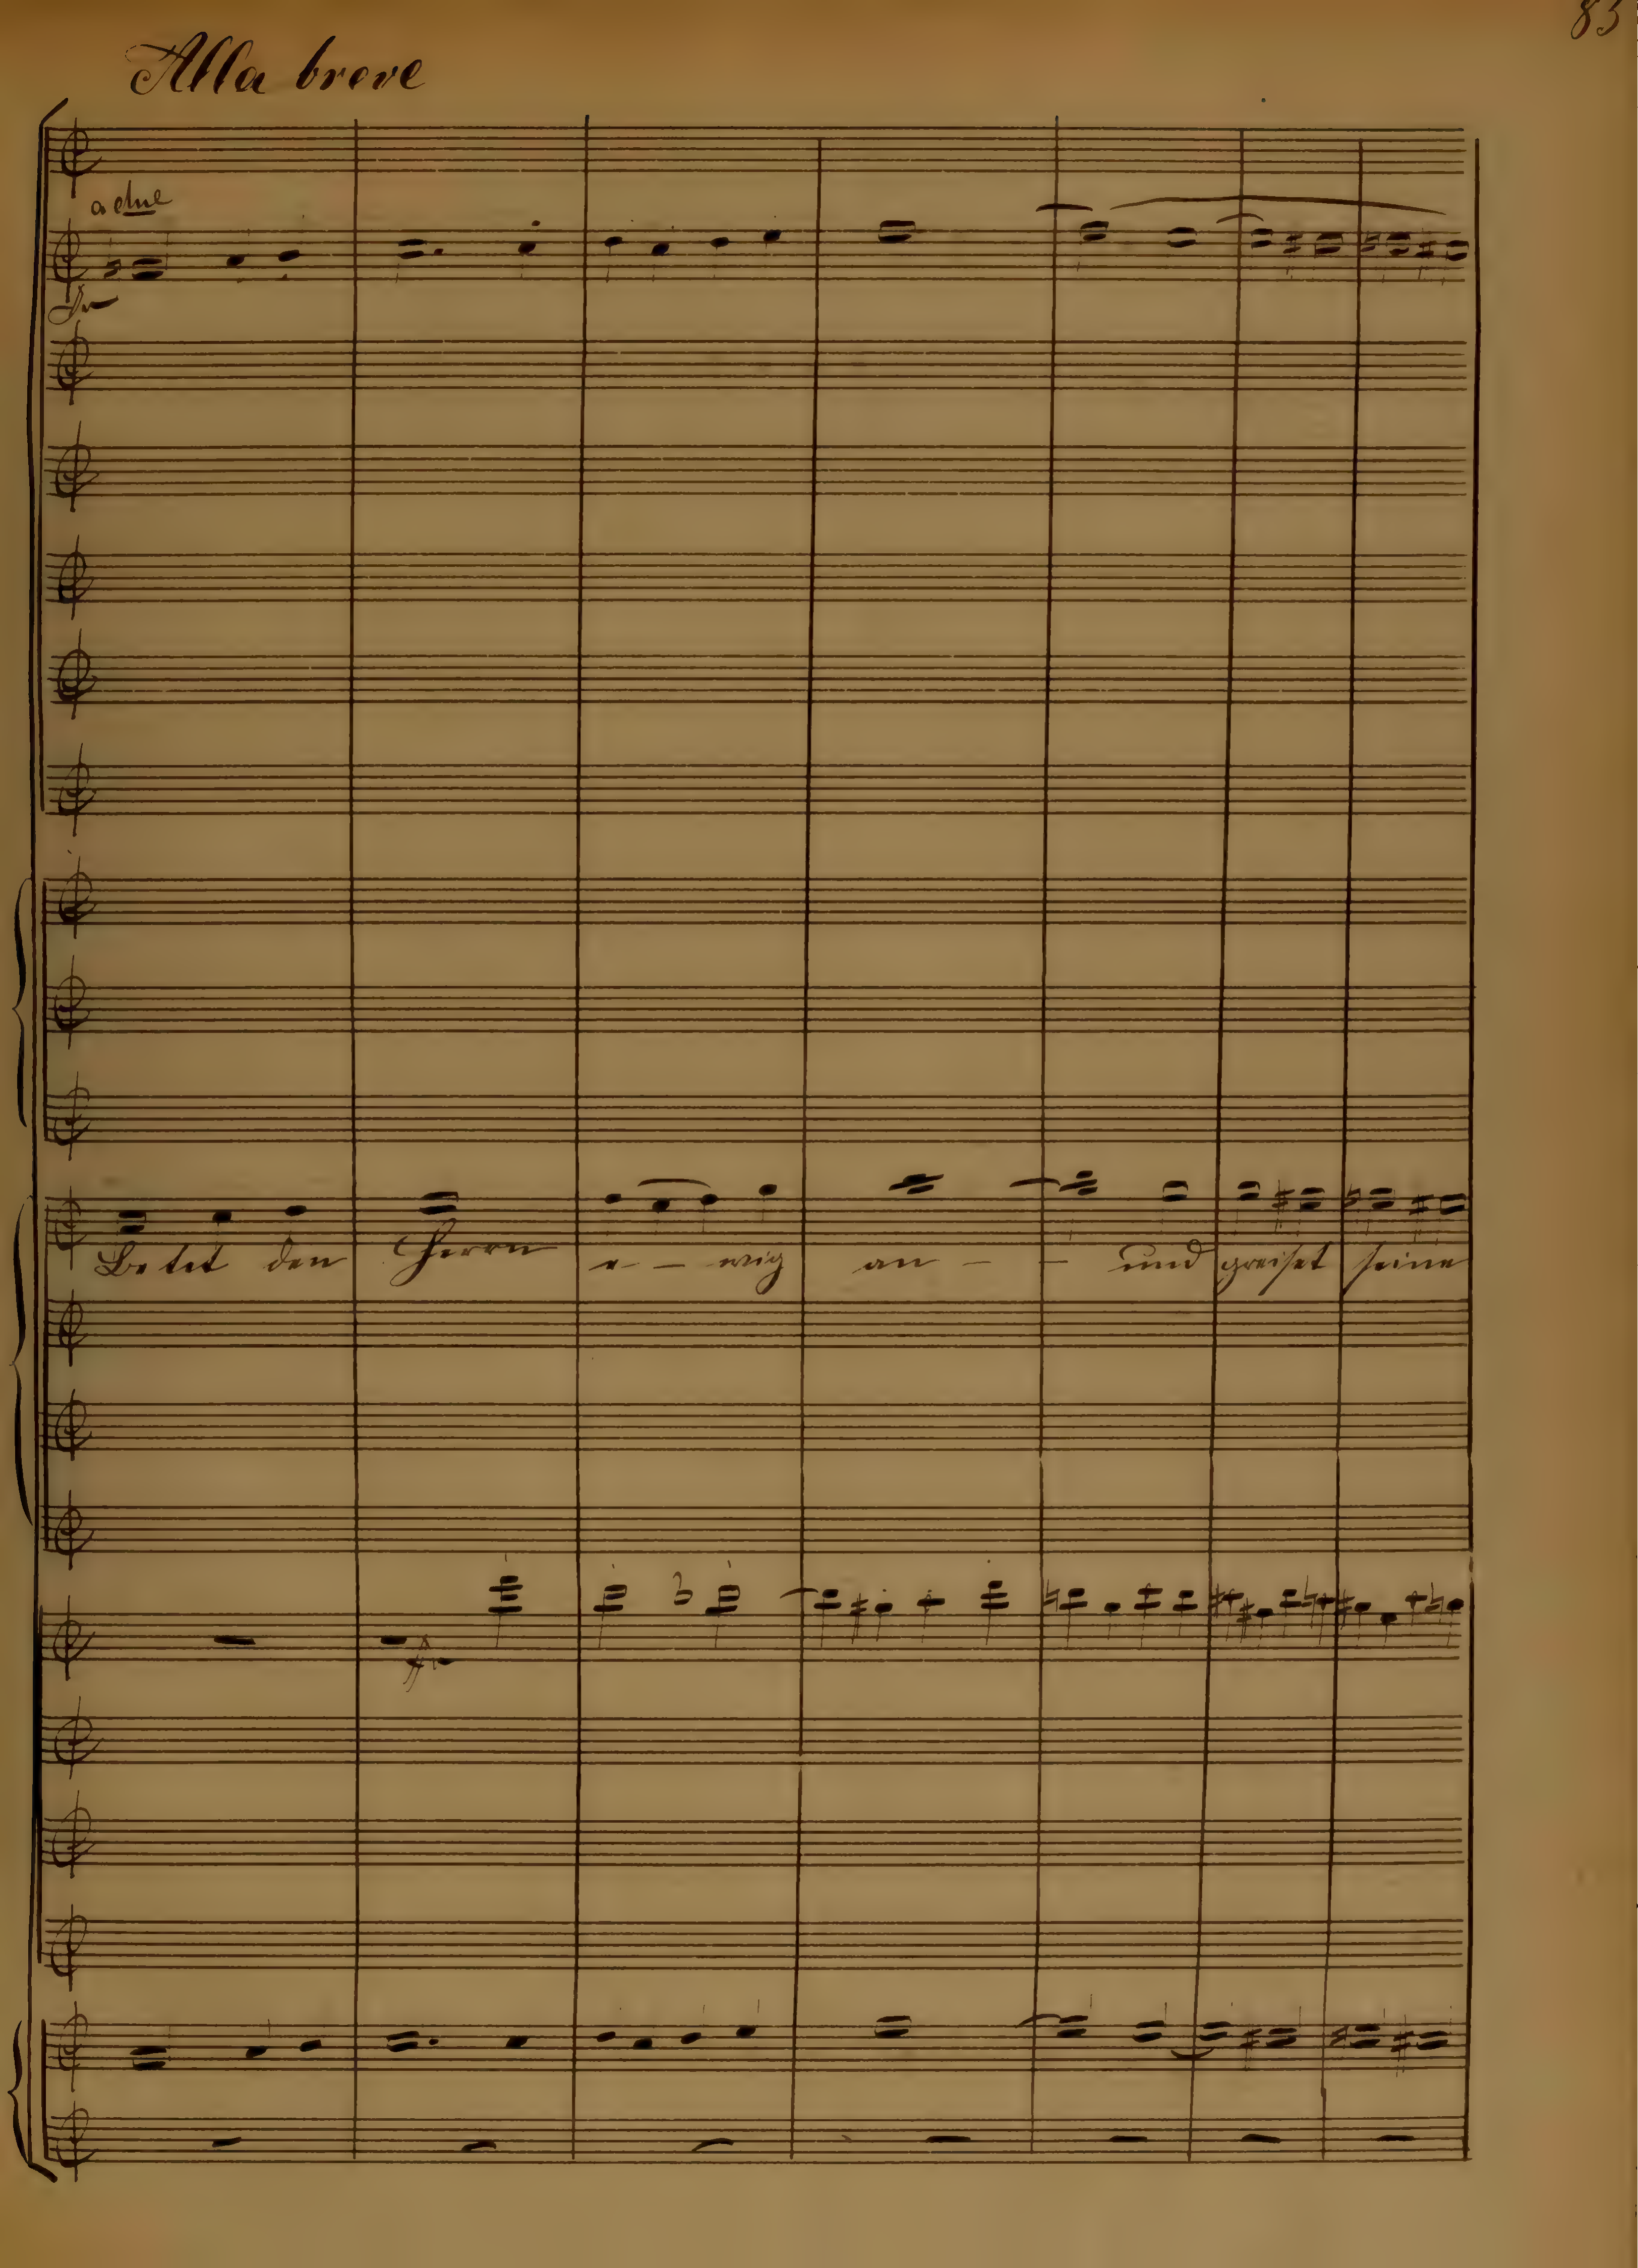 83
Alla breve
a due
Betet den Herrn e - - wig an - - und preiset seine